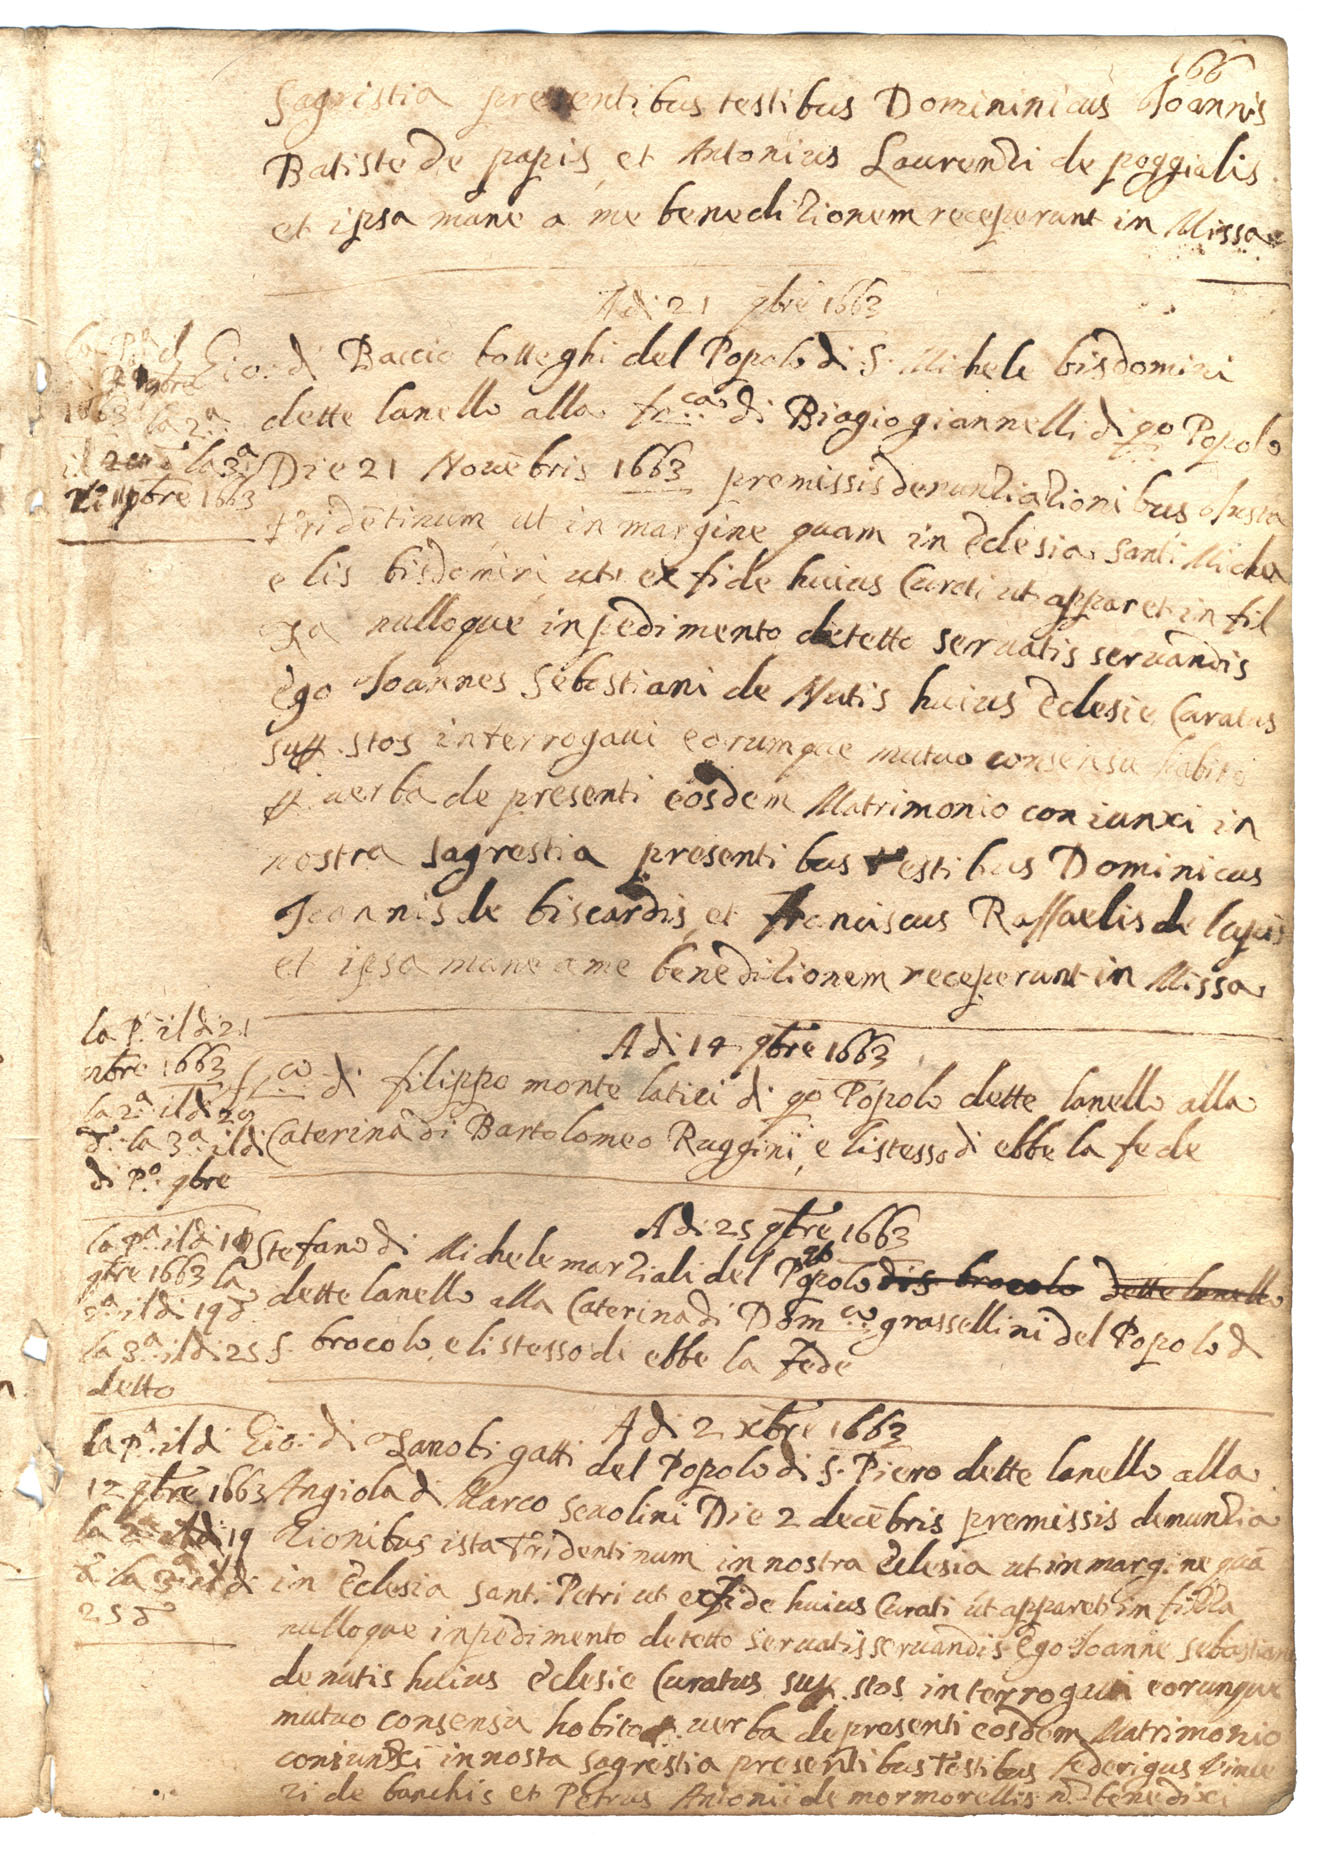 166
Sagristia presentibus testibus Domininicus Joannis
Batiste de papis, et Antonius Laurenzi de poggialis
et ipsa mane a me benedizionem receperunt in Missa
Adi 21 9bre 1663
la P.a
9bre
1663 la 2.a
il la 3.a
9bre 1663
Gio: di Baccio botteghi del Popolo di S. Michele bisdomini
dette lanello alla fr.ca di Biagio giannelli di qo Popolo
Die 21 Novēbris 1663 premissis denunziazionibus
tridētinum, ut in margine quam in Eclesia Santi Micha
elis bisdomini uti ex fide huius Curati ut apparet in fil
za nulloque inpedimento detetto servatis servandis
Ego Joannes Sebastiani de Nutis huius Eclesie Curatus
supp.stos interrogavi eorumque mutuo consensu habito
p. verba de presenti eosdem Matrimonio coniunxi in
nostra sagrestia presentibus testibus Dominicus
Joannis de biscardis, et franciscus Raffaelis de lapis
et ipsa mane a me benedizionem receperunt in Missa
la P.a il di 21
9bre 1663
la 2.a il di 29
d.o la 3.a il di
di P.o 9bre
Adi 14 9bre 1663
f.co di filippo monte latici di qo Popolo dette lanello alla
Caterina di Bartolomeo Ruggini, e listesso di ebbe la fede
la P.a il di 10
9bre 1663 la
2.a il di 19 d.
la 3.a il di 25
detto
Adi 25 9bre 1663
Stefano di Michele marziali del Popolo dis brocolo dette lanello
dette lanello alla Caterina di Dom.co grassellini del Popolo di
S. brocolo, e listesso di ebbe la fede
la p.a il di
12 9bre 1663
la 2.a Adi 19
d. la 3.a il di
25 d.
Adi 2 xbre 1663
Gio: di Zanobi gatti del Popolo di S. Piero dette lanello alla
Angiola di Marco serolini Die 2 decēbris premissis denunzia
zionibus ista tridentinum in nostra Eclesia ut in margine quā
in Eclesia Santi Petri ut ex fide huius Curati ut apparet in filza
nulloque inpedimento detetto servatis servandis Ego Joanne sebastiani
de nutis huius Eclesie Curatus supp.stos interrogavi eorunque
mutuo consensu habito p. verba de presenti eosdem Matrimonio
coniunxi in nosta sagrestia presentibus testibus federigus Vince
zi de banchis et Petrus Antonii de mormorellis benedixi